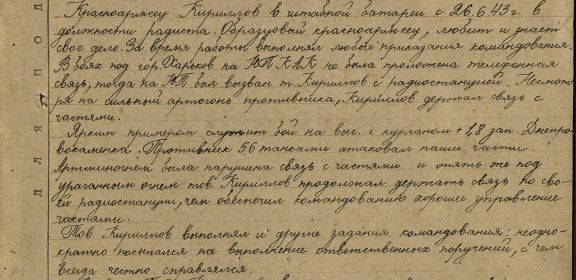 Красноармеец Кириллов в штабной батареи с 26.6.43 г. в
должности радиста. Образцовый красноармеец, любит и знает
свое дело. За время работы выполнял любые приказания командования.
В боях под гор. Харьков на НП КАК не была проложена телефонная
связь, тогда на НП был вызван т. Кириллов с радиостанцией. Несмот-
ря на сильный артогонь противника, Кириллов держал связь с
частями.
Ярким примером служит бой на выс. с курганом +1,8 зап. Днепро-
вокаменка. Противник 56 танками атаковал наши части.
Артминогнем была нарушена связь с частями и опять же под
ураганным огнем тов. Кириллов продолжал держать связь по сво-
ей радиостанции, чем обеспечил командованию хорошее управление
частями.
Тов. Кириллов выполнял и другие задания командования: неодно-
кратно посылался на выполнение ответственных поручений, с чем
всегда честно справлялся.
Д Л Я П О Д